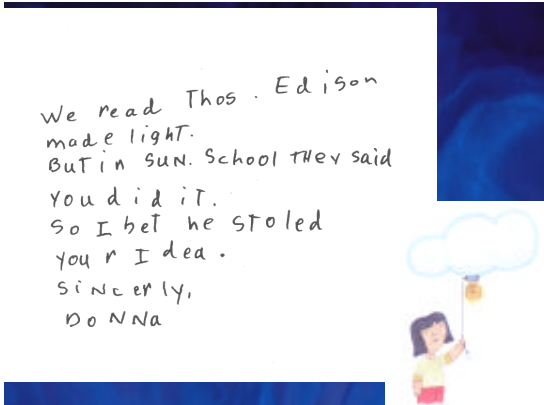 We read Thos. Edison
made light.
But in Sun. School they said
you did it.
So I bet he stoled
your Idea.
Sincerly,
Donna